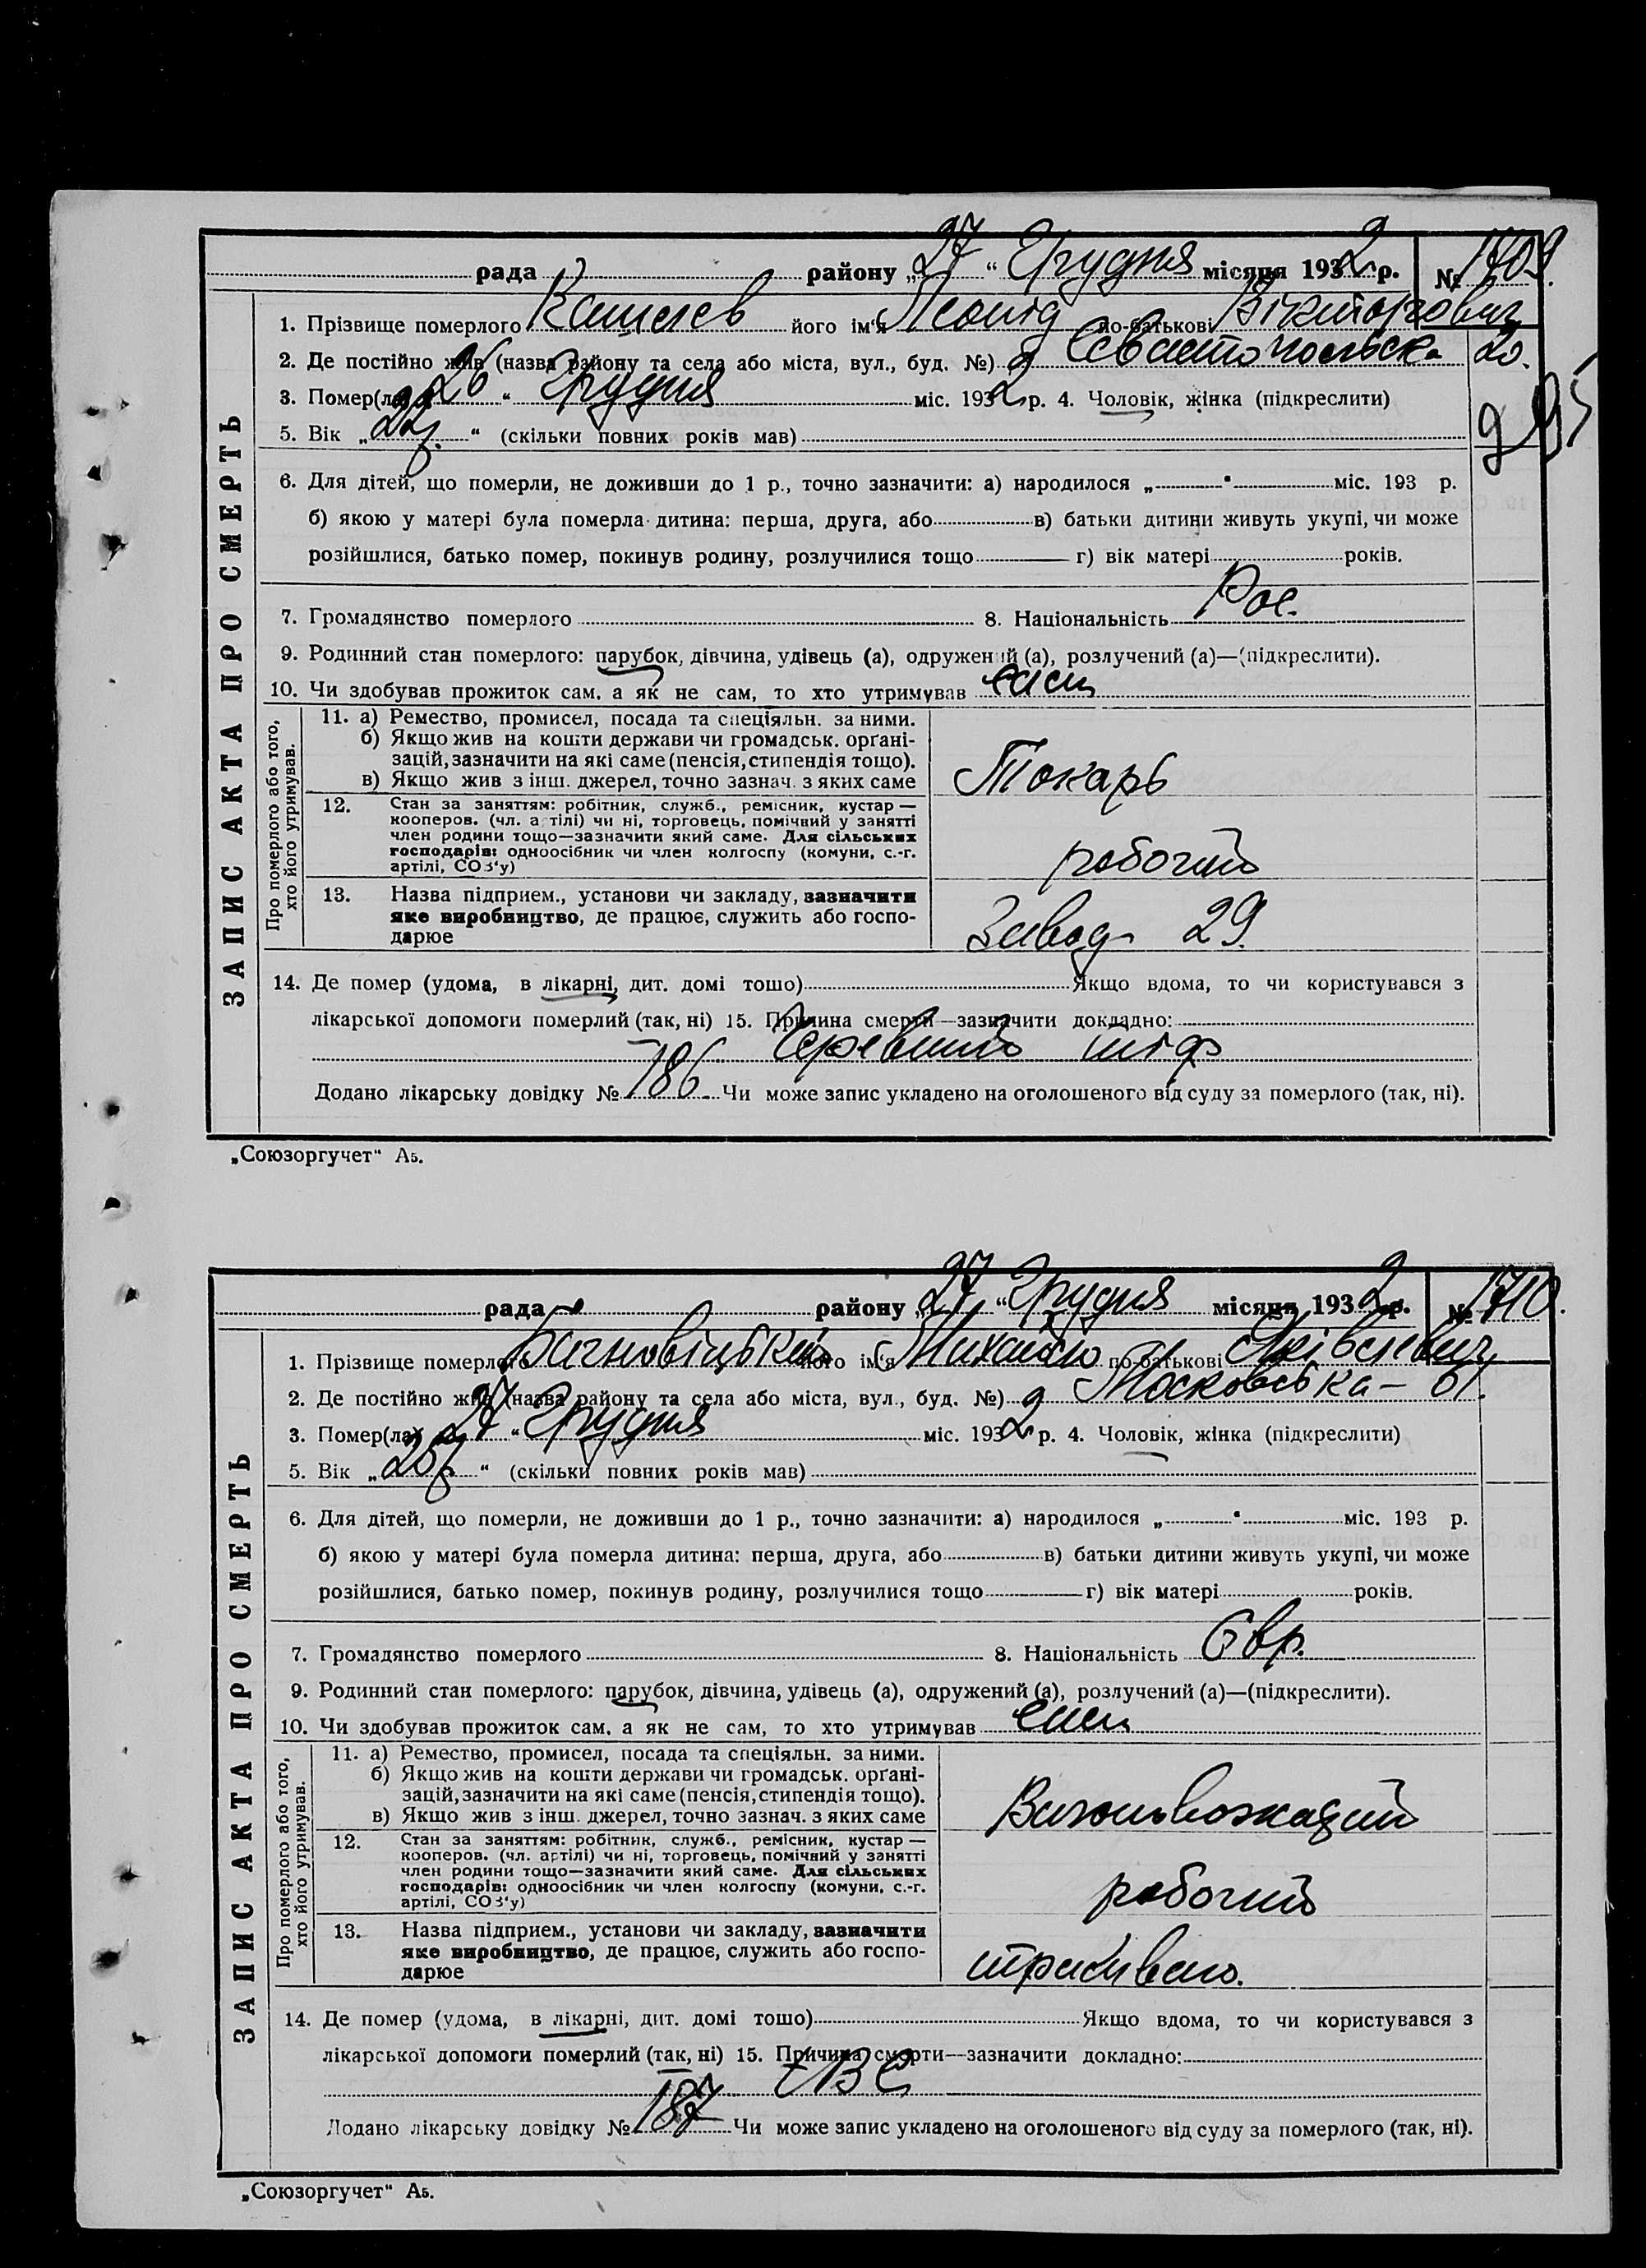 рада району „27“ Грудня місяця 1932 р. № 1709.
1. Прізвище померлого його ім'я Леонід по-батькові Вікторович
2. Де постійно жив (назва району та села або міста, вул., буд. №) Севастопольська 20.
3. Помер(ла) „26“ Грудня міс. 1932 р. 4. Чоловік, жінка (підкреслити)
5. Вік „22р.“ (скільки повних років мав)
6. Для дітей, що померли, не доживши до 1 р., точно зазначити: а) народилося „ “ міс. 193 р.
б) якою у матері була померла дитина: перша, друга, або в) батьки дитини живуть укупі, чи може
розійшлися, батько помер, покинув родину, розлучилися тощо г) вік матері років.
7. Громадянство померлого 8. Національність Рос.
9. Родинний стан померлого: парубок, дівчина, удівець (а), одружений (а), розлучений (а)—(підкреслити).
10. Чи здобував прожиток сам, а як не сам, то хто утримував сам
ЗАПИС АКТА ПРО СМЕРТЬ
Про померлого або того, хто його утримував.
11. а) Ремество, промисел, посада та спеціяльн. за ними.
б) Якщо жив на кошти держави чи громадськ. орґані-
зацій, зазначити на які саме (пенсія, стипендія тощо).
в) Якщо жив з інш. джерел, точно зазнач. з яких саме
Токарь
12. Стан за заняттям: робітник, служб., ремісник, кустар —
кооперов. (чл. артілі) чи ні, торговець, помічний у занятті
член родини тощо—зазначити який саме. Для сільських
господарів: одноосібник чи член колгоспу (комуни, с.-г.
артілі, СОЗ'у)
робочий
13. Назва підприєм., установи чи закладу, зазначити
яке виробництво, де працює, служить або госпо-
дарює
Завод 29.
14. Де помер (удома, в лікарні, дит. домі тощо) Якщо вдома, то чи користувався з
лікарської допомоги померлий (так, ні) 15. Причина смерти—зазначити докладно:
Черевний тиф
Додано лікарську довідку № 786 Чи може запис укладено на оголошеного від суду за померлого (так, ні).
„Союзоргучет“ А5.
рада району „27“ Грудня місяця 1932 р. № 1710.
1. Прізвище померлого його ім'я Михайло по-батькові
2. Де постійно жив (назва району та села або міста, вул., буд. №) Московська — 61.
3. Помер(ла) „27“ Грудня міс. 1932 р. 4. Чоловік, жінка (підкреслити)
5. Вік (скільки повних років мав)
6. Для дітей, що померли, не доживши до 1 р., точно зазначити: а) народилося „ “ міс. 193 р.
б) якою у матері була померла дитина: перша, друга, або в) батьки дитини живуть укупі, чи може
розійшлися, батько помер, покинув родину, розлучилися тощо г) вік матері років.
7. Громадянство померлого 8. Національність Євр.
9. Родинний стан померлого: парубок, дівчина, удівець (а), одружений (а), розлучений (а)—(підкреслити).
10. Чи здобував прожиток сам, а як не сам, то хто утримував сам
ЗАПИС АКТА ПРО СМЕРТЬ
Про померлого або того, хто його утримував.
11. а) Ремество, промисел, посада та спеціяльн. за ними.
б) Якщо жив на кошти держави чи громадськ. орґані-
зацій, зазначити на які саме (пенсія, стипендія тощо).
в) Якщо жив з інш. джерел, точно зазнач. з яких саме
12. Стан за заняттям: робітник, служб., ремісник, кустар —
кооперов. (чл. артілі) чи ні, торговець, помічний у занятті
член родини тощо—зазначити який саме. Для сільських
господарів: одноосібник чи член колгоспу (комуни, с.-г.
артілі, СОЗ'у)
робочий
13. Назва підприєм., установи чи закладу, зазначити
яке виробництво, де працює, служить або госпо-
дарює
14. Де помер (удома, в лікарні, дит. домі тощо) Якщо вдома, то чи користувався з
лікарської допомоги померлий (так, ні) 15. Причина смерти—зазначити докладно:
ТВС
Додано лікарську довідку № 787 Чи може запис укладено на оголошеного від суду за померлого (так, ні).
„Союзоргучет“ А5.